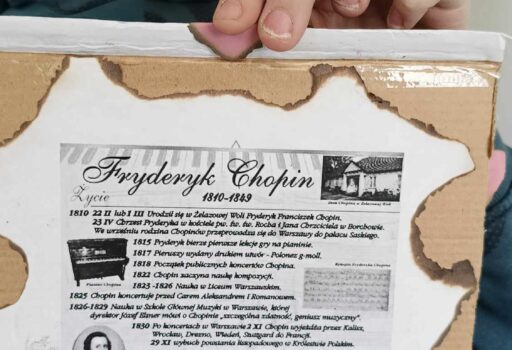 Fryderyk Chopin
1810-1849
Życie
Dom Chopina w Żelazowej Woli
1810 22 II lub 1 III Urodził się w Żelazowej Woli Fryderyk Franciszek Chopin.
23 IV Chrzest Fryderyka w kościele pw. św. św. Rocha i Jana Chrzciciela w Borchowie.
We wrześniu rodzina Chopinów przeprowadza się do Warszawy do pałacu Saskiego.
1815 Fryderyk bierze pierwsze lekcje gry na pianinie.
1817 Pierwszy wydany drukiem utwór - Polonez g-moll.
1818 Początek publicznych koncertów Chopina.
1822 Chopin zaczyna naukę kompozycji.
1823 -1826 Nauka w Liceum Warszawskim.
1825 Chopin koncertuje przed Carem Aleksandrem I Romanowem.
1826-1829 Nauka w Szkole Głównej Muzyki w Warszawie, której
dyrektor Józef Elsner mówi o Chopinie "szczególna zdatność, geniusz muzyczny".
1830 Po koncertach w Warszawie 2 XI Chopin wyjeżdża przez Kalisz,
Wrocław, Drezno, Wiedeń, Stuttgard do Francji.
29 XI wybuch powstania listopadowego w Królestwie Polskim.
Pianino Chopina
Rękopis Fryderyka Chopina